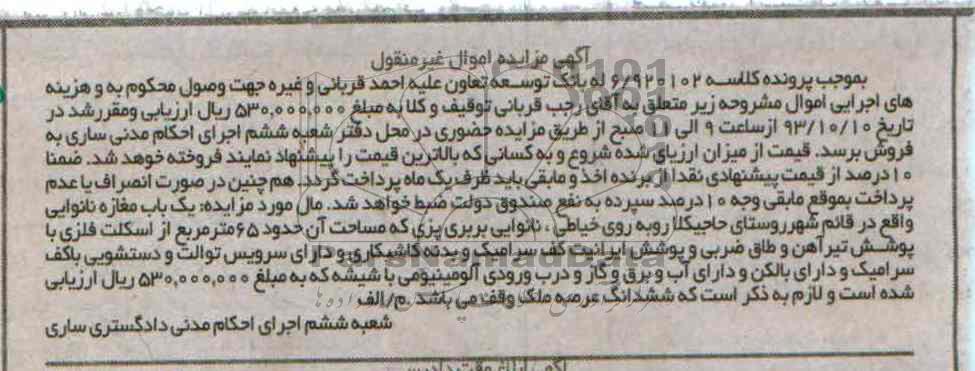 آگهی مزایده اموال غیرمنقول
بموجب پرونده کلاسه ۶/۹۲۰۱۰۲ له بانک توسعه تعاون علیه احمد قربانی و غیره جهت وصول محکوم به و هزینه
های اجرایی اموال مشروحه زیر متعلق به آقای رجب قربانی توقیف و کلا به مبلغ ۵۳۰,۰۰۰,۰۰۰ ریال ارزیابی ومقرر شد در
تاریخ ۹۳/۱۰/۱۰ ازساعت ۹ الی ۱۱ صبح از طریق مزایده حضوری در محل دفتر شعبه ششم اجرای احکام مدنی ساری به
فروش برسد. قیمت از میزان ارزیای شده شروع و به کسانی که بالاترین قیمت را پیشنهاد نمایند فروخته خوهد شد. ضمنا
۱۰درصد از قیمت پیشنهادی نقدا از برنده اخذ و مابقی باید ظرف یک ماه پرداخت گردد. هم چنین در صورت انصراف یا عدم
پرداخت بموقع مابقی وجه ۱۰درصد سپرده به نفع صندوق دولت ضبط خواهد شد. مال مورد مزایده: یک باب مغازه نانوایی
واقع در قائم شهر روستای حاجیکلا روبه روی خیاطی ، نانوایی بربری پزی که مساحت آن حدود ۶۵مترمربع از اسکلت فلزی با
پوشش تیرآهن و طاق ضربی و پوشش ایرانیت کف سرامیک و بدنه کاشیکاری و دارای سرویس توالت و دستشویی باکف
سرامیک و دارای بالکن و دارای آب و برق و گاز و درب ورودی آلومینیومی با شیشه که به مبلغ ۵۳۰,۰۰۰,۰۰۰ ریال ارزیابی
شده است و لازم به ذکر است که ششدانگ عرصه ملک وقف می باشد .م/الف
شعبه ششم اجرای احکام مدنی دادگستری ساری